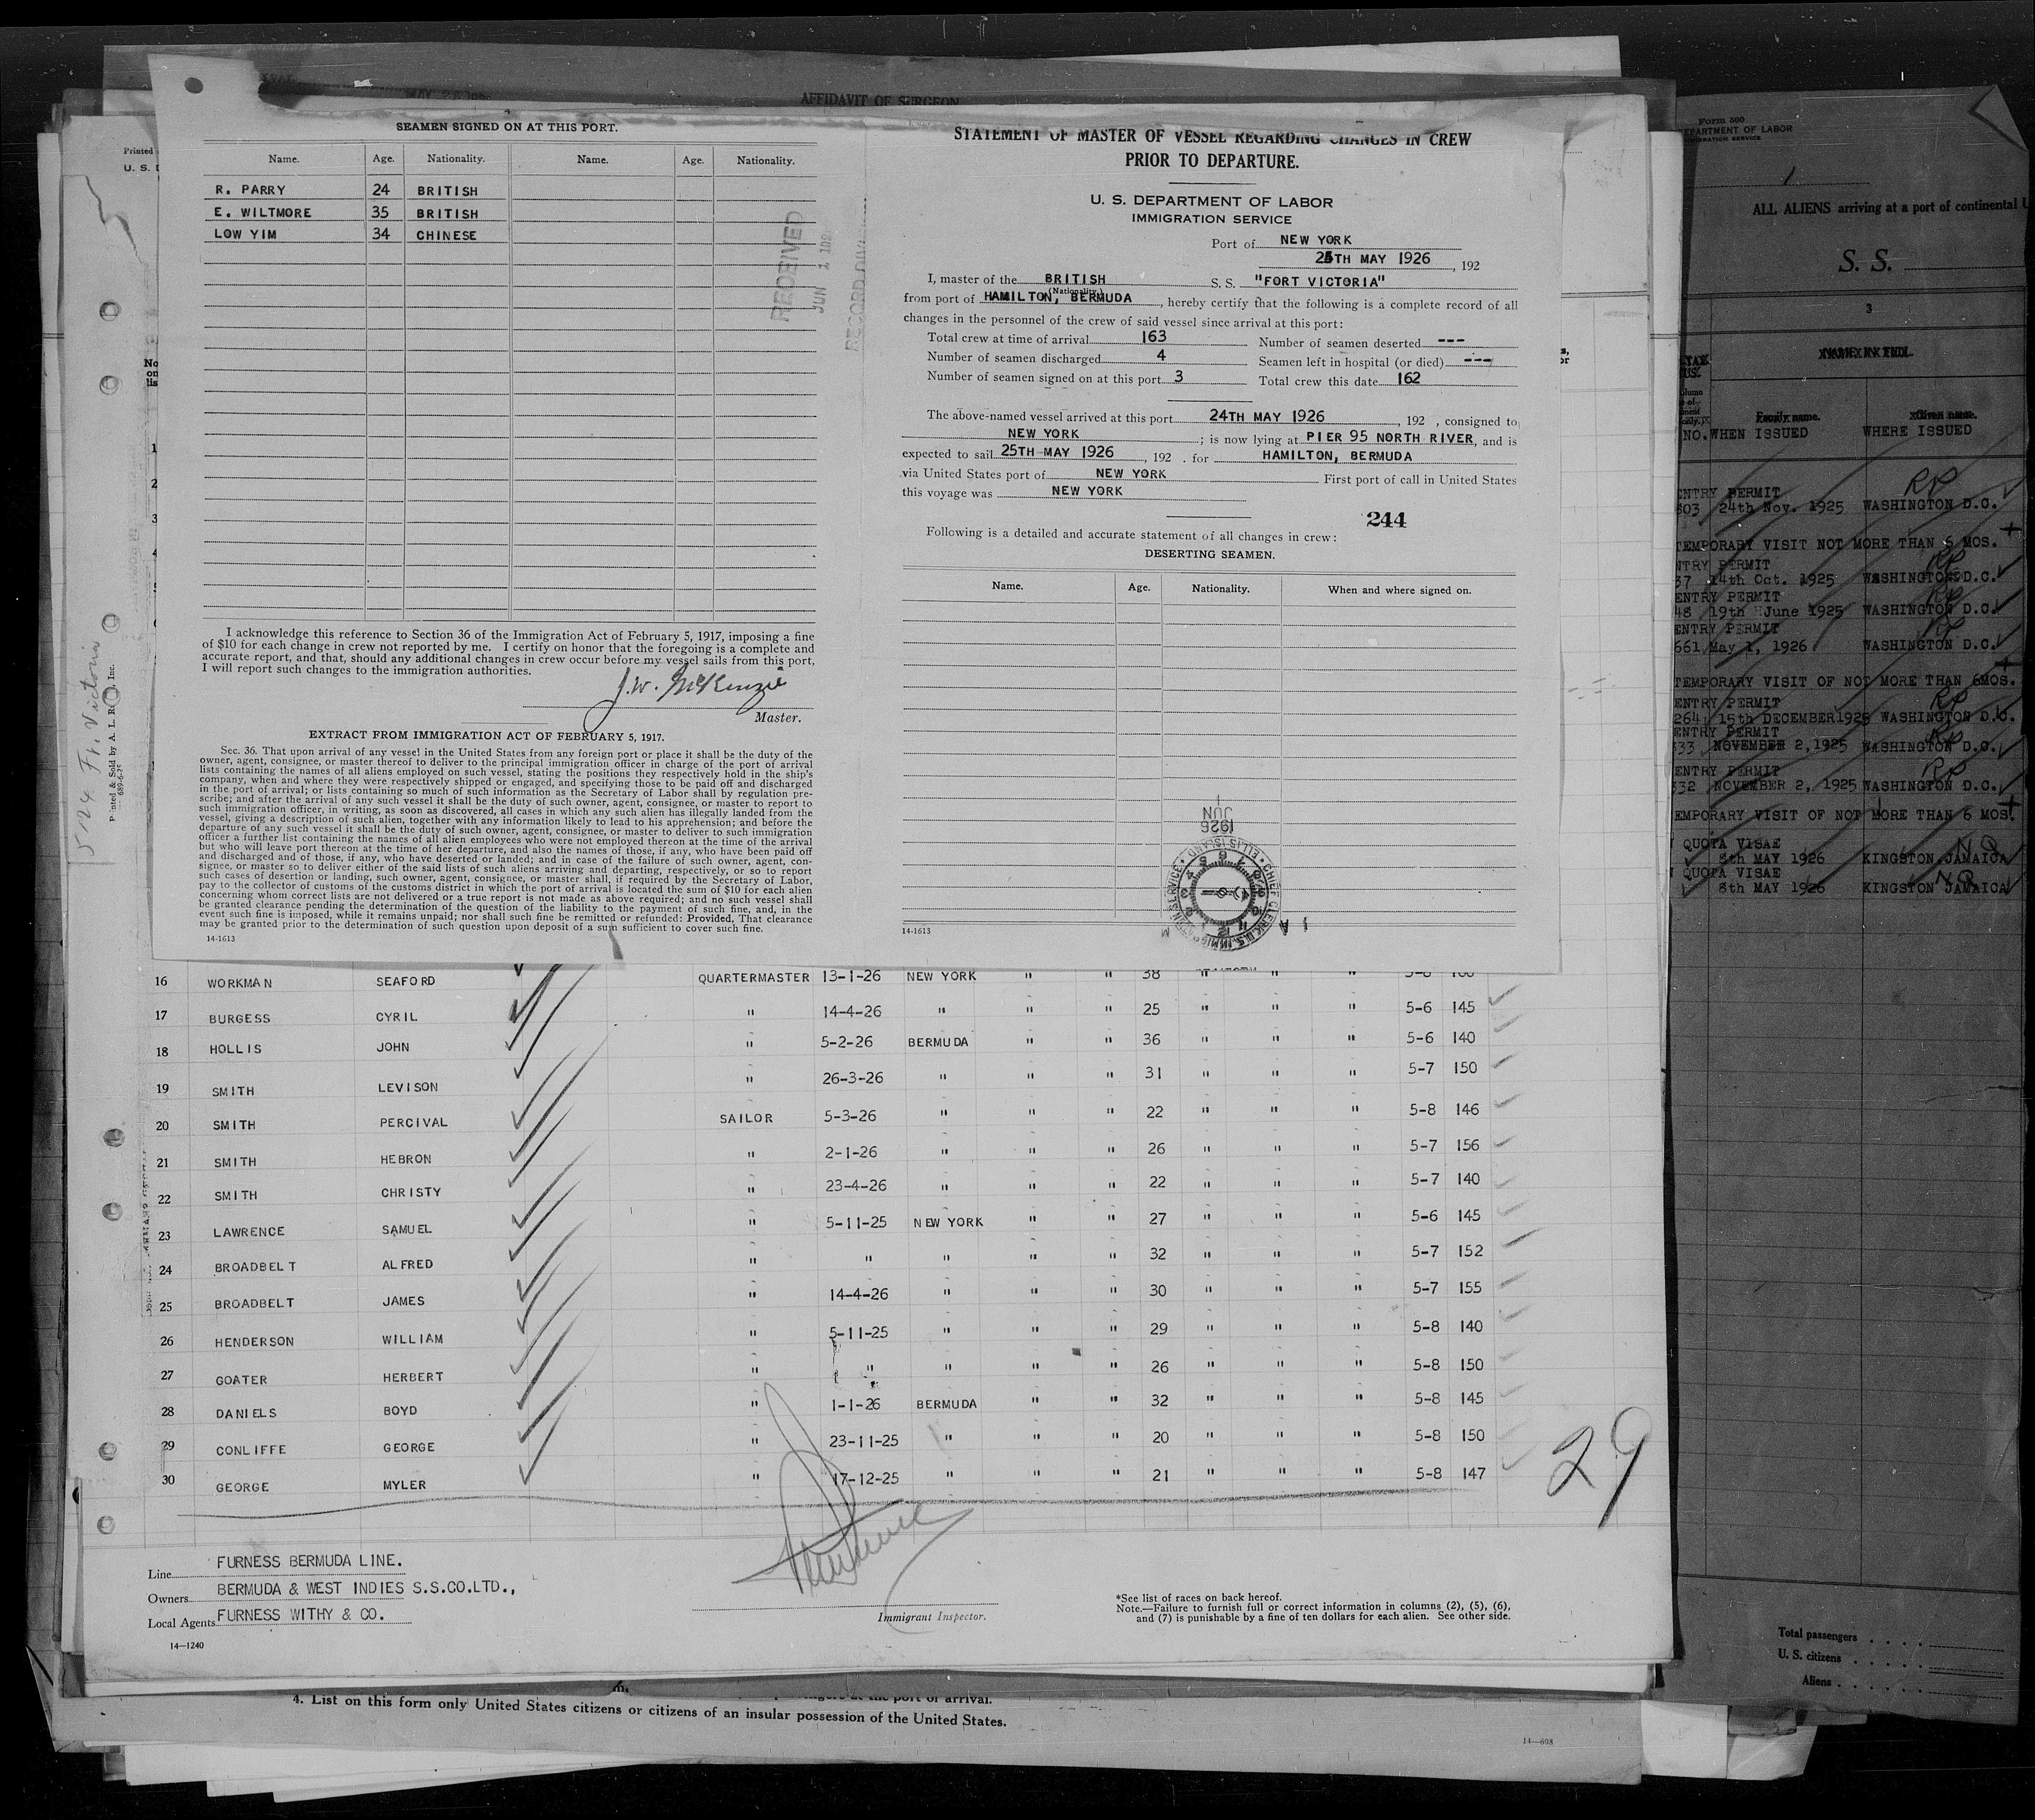 AFFIDAVIT OF SURGEON
SEAMEN SIGNED ON AT THIS PORT.
Name. Age. Nationality. Name. Age. Nationality.
R. PARRY 24 BRITISH
E. WILTMORE 35 BRITISH
LOW YIM 34 CHINESE
RECEIVED
JUN 1 192
RECORD DIVI
I acknowledge this reference to Section 36 of the Immigration Act of February 5, 1917, imposing a fine
of $10 for each change in crew not reported by me. I certify on honor that the foregoing is a complete and
accurate report, and that, should any additional changes in crew occur before my vessel sails from this port,
I will report such changes to the immigration authorities.
J. W. McKenzie
Master.
EXTRACT FROM IMMIGRATION ACT OF FEBRUARY 5, 1917.
Sec. 36. That upon arrival of any vessel in the United States from any foreign port or place it shall be the duty of the
owner, agent, consignee, or master thereof to deliver to the principal immigration officer in charge of the port of arrival
lists containing the names of all aliens employed on such vessel, stating the positions they respectively hold in the ship's
company, when and where they were respectively shipped or engaged, and specifying those to be paid off and discharged
in the port of arrival; or lists containing so much of such information as the Secretary of Labor shall by regulation pre-
scribe; and after the arrival of any such vessel it shall be the duty of such owner, agent, consignee, or master to report to
such immigration officer, in writing, as soon as discovered, all cases in which any such alien has illegally landed from the
vessel, giving a description of such alien, together with any information likely to lead to his apprehension; and before the
departure of any such vessel it shall be the duty of such owner, agent, consignee, or master to deliver to such immigration
officer a further list containing the names of all alien employees who were not employed thereon at the time of the arrival
but who will leave port thereon at the time of her departure, and also the names of those, if any, who have been paid off
and discharged and of those, if any, who have deserted or landed; and in case of the failure of such owner, agent, con-
signee, or master so to deliver either of the said lists of such aliens arriving and departing, respectively, or so to report
such cases of desertion or landing, such owner, agent, consignee, or master shall, if required by the Secretary of Labor,
pay to the collector of customs of the customs district in which the port of arrival is located the sum of $10 for each alien
concerning whom correct lists are not delivered or a true report is not made as above required; and no such vessel shall
be granted clearance pending the determination of the question of the liability to the payment of such fine, and, in the
event such fine is imposed, while it remains unpaid; nor shall such fine be remitted or refunded: Provided, That clearance
may be granted prior to the determination of such question upon deposit of a sum sufficient to cover such fine.
14-1613
STATEMENT OF MASTER OF VESSEL REGARDING CHANGES IN CREW
PRIOR TO DEPARTURE.
U. S. DEPARTMENT OF LABOR
IMMIGRATION SERVICE
Port of NEW YORK
25TH MAY 1926, 192
I, master of the BRITISH S. S. "FORT VICTORIA"
(Nationality.)
from port of HAMILTON, BERMUDA, hereby certify that the following is a complete record of all
changes in the personnel of the crew of said vessel since arrival at this port:
Total crew at time of arrival 163 Number of seamen deserted ---
Number of seamen discharged 4 Seamen left in hospital (or died) ---
Number of seamen signed on at this port 3 Total crew this date 162
The above-named vessel arrived at this port 24TH MAY 1926, 192 , consigned to
NEW YORK ; is now lying at PIER 95 NORTH RIVER, and is
expected to sail 25TH MAY 1926, 192 . for HAMILTON, BERMUDA
via United States port of NEW YORK First port of call in United States
this voyage was NEW YORK
244
Following is a detailed and accurate statement of all changes in crew:
DESERTING SEAMEN.
Name. Age. Nationality. When and where signed on.
JUN 1
1926
CHIEF CLERK U.S. IMMIGRATION SERVICE ELLIS ISLAND
14-1613
5/24 Ft. Victoria
16 WORKMAN SEAFORD QUARTERMASTER 13-1-26 NEW YORK " " 38 " " "
17 BURGESS CYRIL " 14-4-26 " " " 25 " " " 5-6 145
18 HOLLIS JOHN " 5-2-26 BERMUDA " " 36 " " " 5-6 140
19 SMITH LEVISON " 26-3-26 " " " 31 " " " 5-7 150
20 SMITH PERCIVAL SAILOR 5-3-26 " " " 22 " " " 5-8 146
21 SMITH HEBRON " 2-1-26 " " " 26 " " " 5-7 156
22 SMITH CHRISTY " 23-4-26 " " " 22 " " " 5-7 140
23 LAWRENCE SAMUEL " 5-11-25 NEW YORK " " 27 " " " 5-6 145
24 BROADBELT ALFRED " " " " " 32 " " " 5-7 152
25 BROADBELT JAMES " 14-4-26 " " " 30 " " " 5-7 155
26 HENDERSON WILLIAM " 5-11-25 " " " 29 " " " 5-8 140
27 GOATER HERBERT " " " " " 26 " " " 5-8 150
28 DANIELS BOYD " 1-1-26 BERMUDA " " 32 " " " 5-8 145
29 CONLIFFE GEORGE " 23-11-25 " " " 20 " " " 5-8 150
30 GEORGE MYLER " 17-12-25 " " " 21 " " " 5-8 147
29
Line FURNESS BERMUDA LINE.
Owners BERMUDA & WEST INDIES S.S.CO.LTD.,
Local Agents FURNESS WITHY & CO.
Immigrant Inspector.
*See list of races on back hereof.
Note.—Failure to furnish full or correct information in columns (2), (5), (6),
and (7) is punishable by a fine of ten dollars for each alien. See other side.
14—1240
4. List on this form only United States citizens or citizens of an insular possession of the United States.
14—608
Form 500
DEPARTMENT OF LABOR
IMMIGRATION SERVICE
ALL ALIENS arriving at a port of continental U
S. S.
3
NAME IN FULL
Family name. Given name.
NO. WHEN ISSUED WHERE ISSUED
ENTRY PERMIT
303 24th Nov. 1925 WASHINGTON D.C.
TEMPORARY VISIT NOT MORE THAN 6 MOS.
ENTRY PERMIT
37 14th Oct. 1925 WASHINGTON D.C.
ENTRY PERMIT
48 19th June 1925 WASHINGTON D.C.
ENTRY PERMIT
661 May 1, 1926 WASHINGTON D.C.
TEMPORARY VISIT OF NOT MORE THAN 6MOS.
ENTRY PERMIT
264 15th DECEMBER1925 WASHINGTON D.C.
ENTRY PERMIT
33 NOVEMBER 2,1925 WASHINGTON D.C.
ENTRY PERMIT
332 NOVEMBER 2, 1925 WASHINGTON D.C.
TEMPORARY VISIT OF NOT MORE THAN 6 MOS.
QUOTA VISAE NQ
8th MAY 1926 KINGSTON JAMAICA
QUOTA VISAE NQ
8th MAY 1926 KINGSTON JAMAICA
Total passengers
U. S. citizens
Aliens